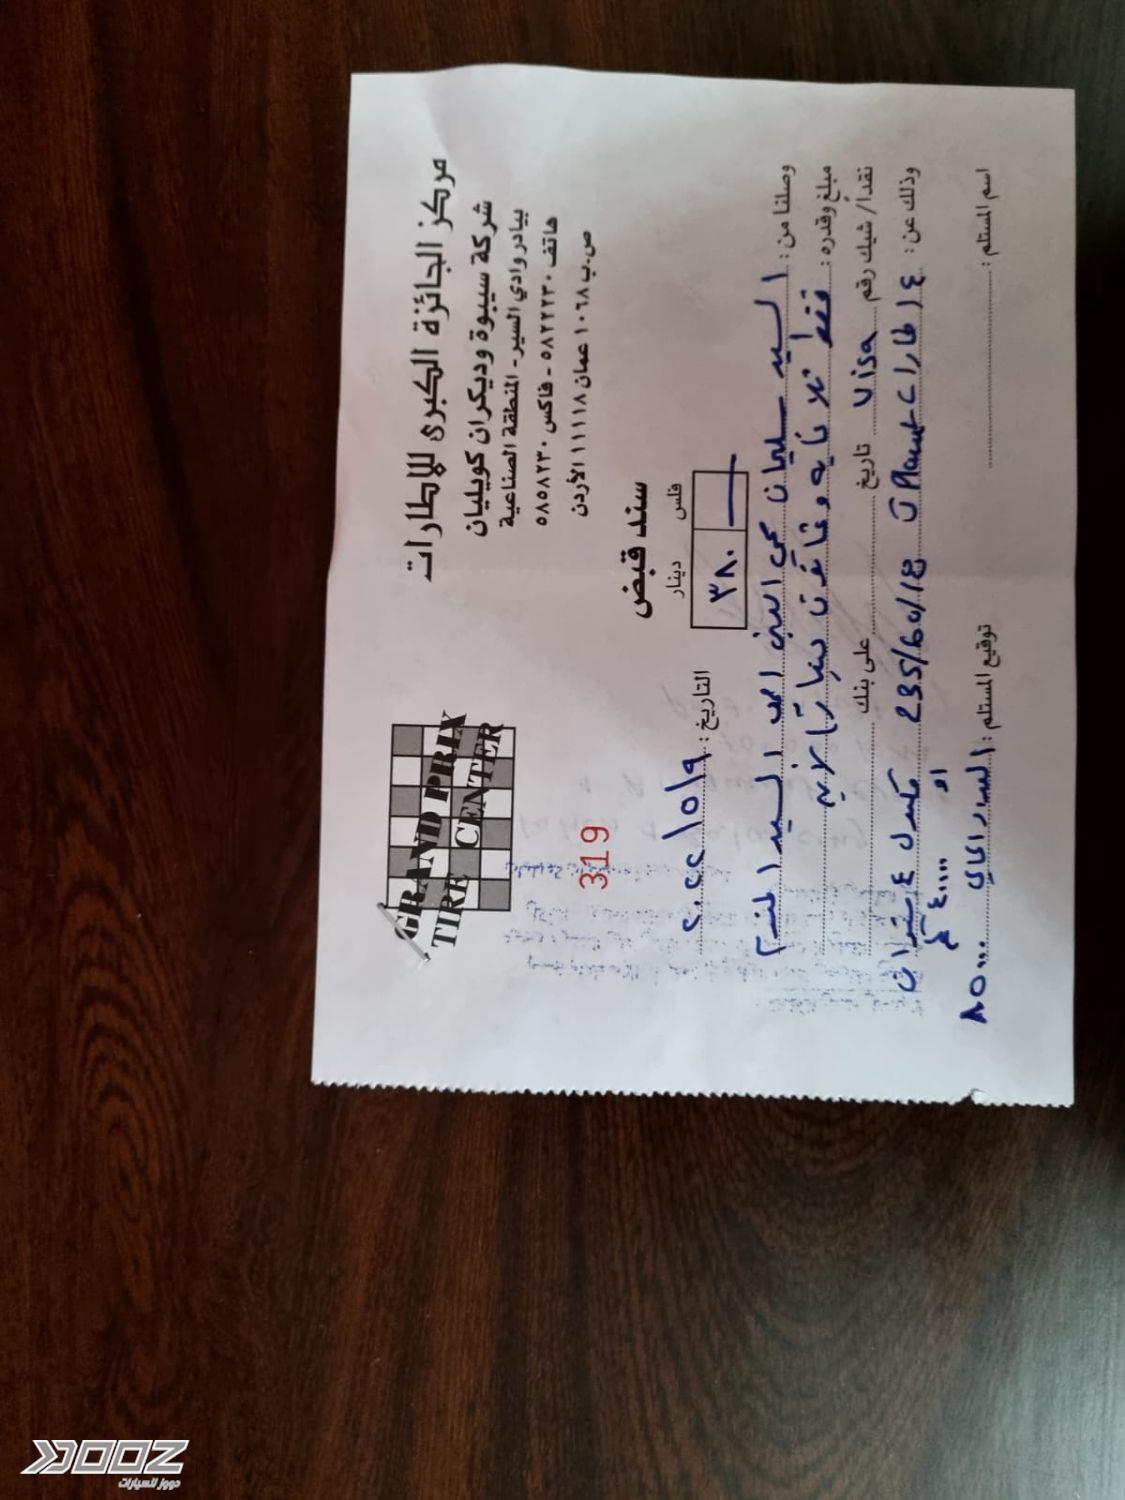 GRAND PRIX
TIRE CENTER
مركز الجائزة الكبرى للإطارات
شركة سيبوة وديكران كويليان
بيادر وادي السير - المنطقة الصناعية
هاتف ٥٨٢٢٢٣٠ - فاكس ٥٨٥٨٢٣٠
ص.ب ١٠٦٨ عمان ١١١١٨ الأردن
319
سند قبض
دينار فلس
٣٨٠ —
التاريخ : ٢٠٢٢/٥/٩
وصلنا من : السيد سليمان محي الدين السيد المحترم
مبلغ وقدره : فقط ثلاثمايه وثمانون دينار
نقداً/ شيك رقم Visa تاريخ على بنك
وذلك عن : ٤ اطارات 235/60/18 مكفول ٤ سنوات
او ٤٠٠٠٠ كم
اسم المستلم :
توقيع المستلم :
٨٥٠٠٠
DOOZ
دووز للسيارات